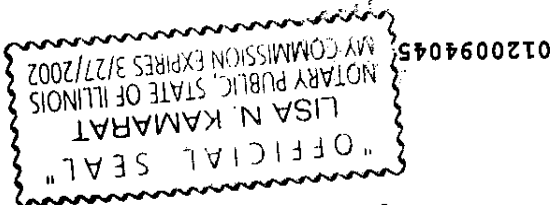 "OFFICIAL SEAL"
LISA N. KAMARAT
NOTARY PUBLIC, STATE OF ILLINOIS
MY COMMISSION EXPIRES 3/27/2002
0120094045